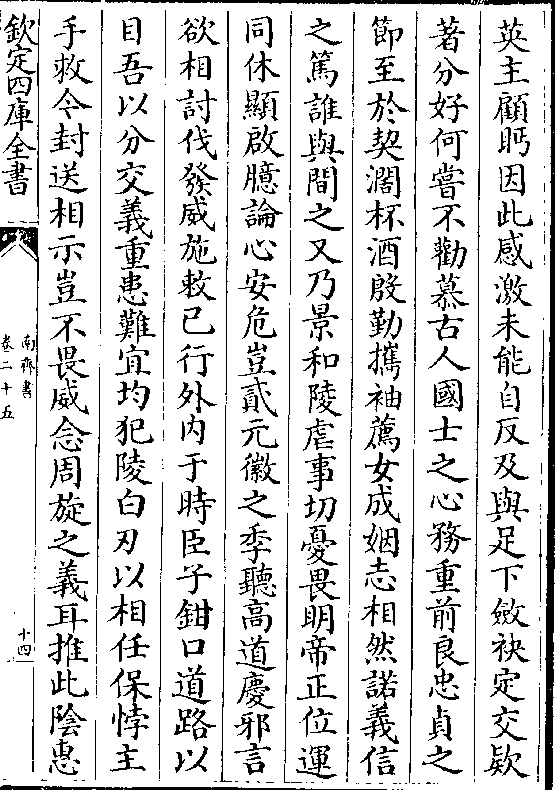 英主顧眄因此感激未能自反及與足下斂袂定交欵
著分好何嘗不勸慕古人國士之心務重前良忠貞之
節至於契濶杯酒殷勤攜袖薦女成姻志相然諾義信
之篤誰與間之又乃景和陵虐事切憂畏明帝正位運
同休顯啟臆論心安危豈貳元徽之季聽高道慶邪言
欲相討伐發威施敕已行外内于時臣子鉗口道路以
目吾以分交義重患難宜均犯陵白刃以相任保悖主
手敕今封送相示豈不畏威念周旋之義耳推此陰惠
欽定四庫全書
南齊書
卷二十五
十四